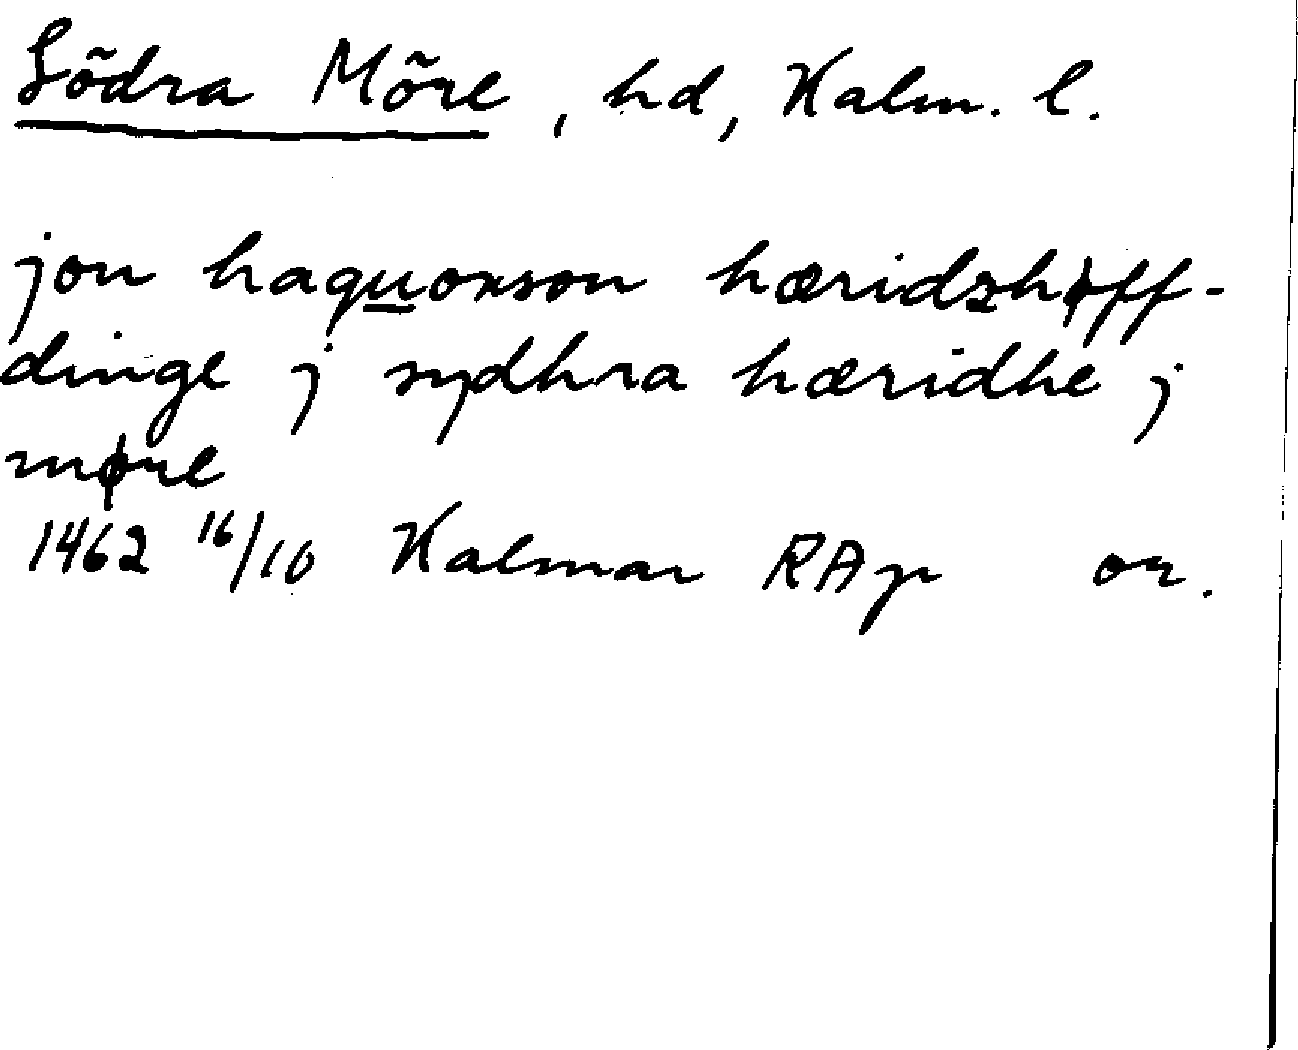 Södra Möre, hd, Kalm. l.
jon haquonson hæridzhøff-
dinge j sydhra hæridhe j
møre
1462 16/10 Kalmar RAp or.